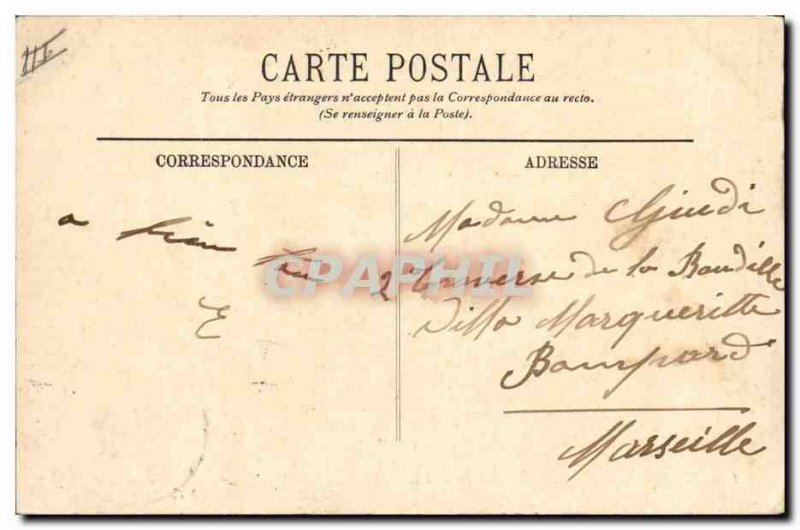 116
CARTE POSTALE
Tous les Pays étrangers n'acceptent pas la Correspondance au recto.
(Se renseigner à la Poste).
CORRESPONDANCE
a bien
E
CPARHIL
ADRESSE
Madame Giudi
2 Traverse de la Baudille
Villa Marguerite
Bompard
Marseille